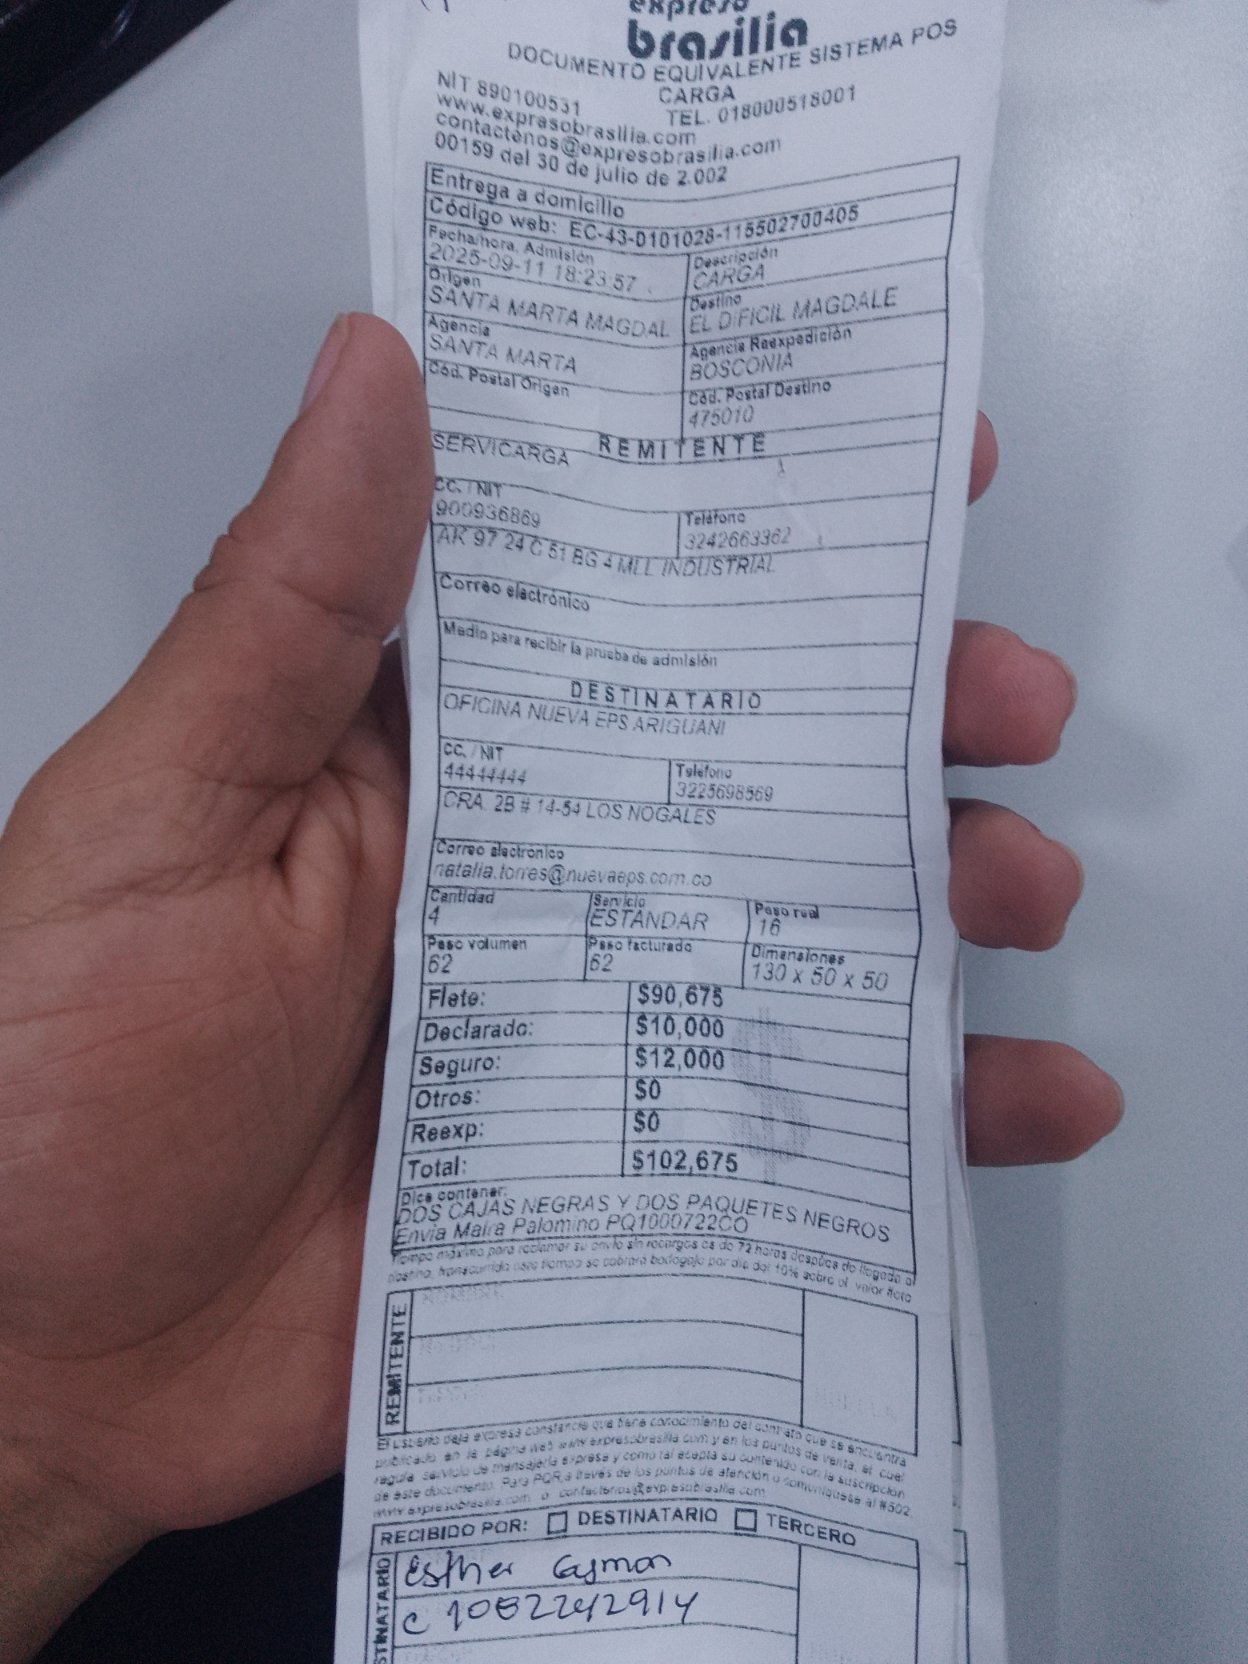 expreso
brasilia
DOCUMENTO EQUIVALENTE SISTEMA POS
CARGA
NIT 890100531
TEL. 018000518001
www.expresobrasilia.com
contactenos@expresobrasilia.com
00159 del 30 de julio de 2.002
Entrega a domicilio
Código web: EC-43-0101028-115502700405
Fecha/hora, Admisión
2025-09-11 18:23:57
Descripción
CARGA
Origen
SANTA MARTA MAGDAL
Destino
EL DIFICIL MAGDALE
Agencia
SANTA MARTA
Agencia Reexpedición
BOSCONIA
Cód. Postal Origen
Cód. Postal Destino
475010
REMITENTE
SERVICARGA
CC. / NIT
900936869
Teléfono
3242663362
AK 97 24 C 51 BG 4 MLL INDUSTRIAL
Correo electrónico
Medio para recibir la prueba de admisión
DESTINATARIO
OFICINA NUEVA EPS ARIGUANI
CC. / NIT
44444444
Teléfono
3225698569
CRA. 2B # 14-54 LOS NOGALES
Correo electrónico
natalia.torres@nuevaeps.com.co
Cantidad
4
Servicio
ESTANDAR
Peso real
16
Peso volumen
62
Peso facturado
62
Dimensiones
130 x 50 x 50
Flete: $90,675
Declarado: $10,000
Seguro: $12,000
Otros: $0
Reexp: $0
Total: $102,675
Dice contener:
DOS CAJAS NEGRAS Y DOS PAQUETES NEGROS
Envia Maira Palomino PQ1000722CO
Tiempo máximo para reclamar su envío sin recargos es de 72 horas después de llegado a
destino, transcurrido ese tiempo se cobrará bodegaje por día del 10% sobre el valor flete
REMITENTE
El usuario deja expresa constancia que tiene conocimiento del contrato que se encuentra
publicado en la página web www.expresobrasilia.com y en los puntos de venta, el cual
regula servicio de mensajería expresa y como tal acepta su contenido con la suscripción
de este documento. Para PQR a través de los puntos de atención o comuníquese al #502
www.expresobrasilia.com o contactenos@expresobrasilia.com
RECIBIDO POR: DESTINATARIO TERCERO
Esther
c 1082242914